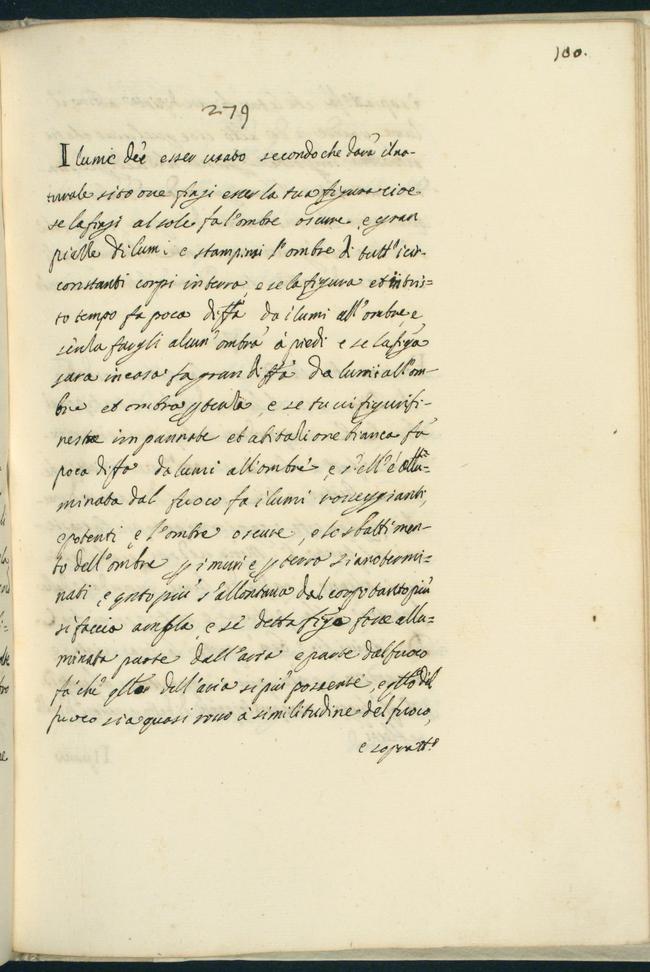 100.
279
Il lume deè esser usato secondo che darà il na-
turale sito oue fingi esser la tua figura cioe
se la fingi al sole fa l'ombre oscure, e gran
piazze di lumi e stampirai l'ombre di tutt'i cir-
constanti corpi in terra, e se la figura et in tris=
to tempo fa poca diffa da i lumi all'ombre, e
senza fargli alcun'ombra à piedi e se la figa
sara in casa fa gran diffa da lumi all'om-
bre et ombra p terra, e se tu ui figuri fi-
nestra impannata et abitatione bianca fà
poca diffa da lumi all'ombre, e s'ell'è allu=
minata dal fuoco fa i lumi rosseggianti,
e potenti, e l'ombre oscure, e lo sbattimen-
to dell'ombre p i muri e p terra siano termi=
nati, e qnto più s'allontana dal corpo tanto più
si faccia ampla, e se detta figa fosse allu=
minata parte dall'aria e parte dal fuoco
fà che qlla dell'aria si più possente, e qlla del
fuoco sia quasi rossa à similitudine del fuoco,
e sopratto